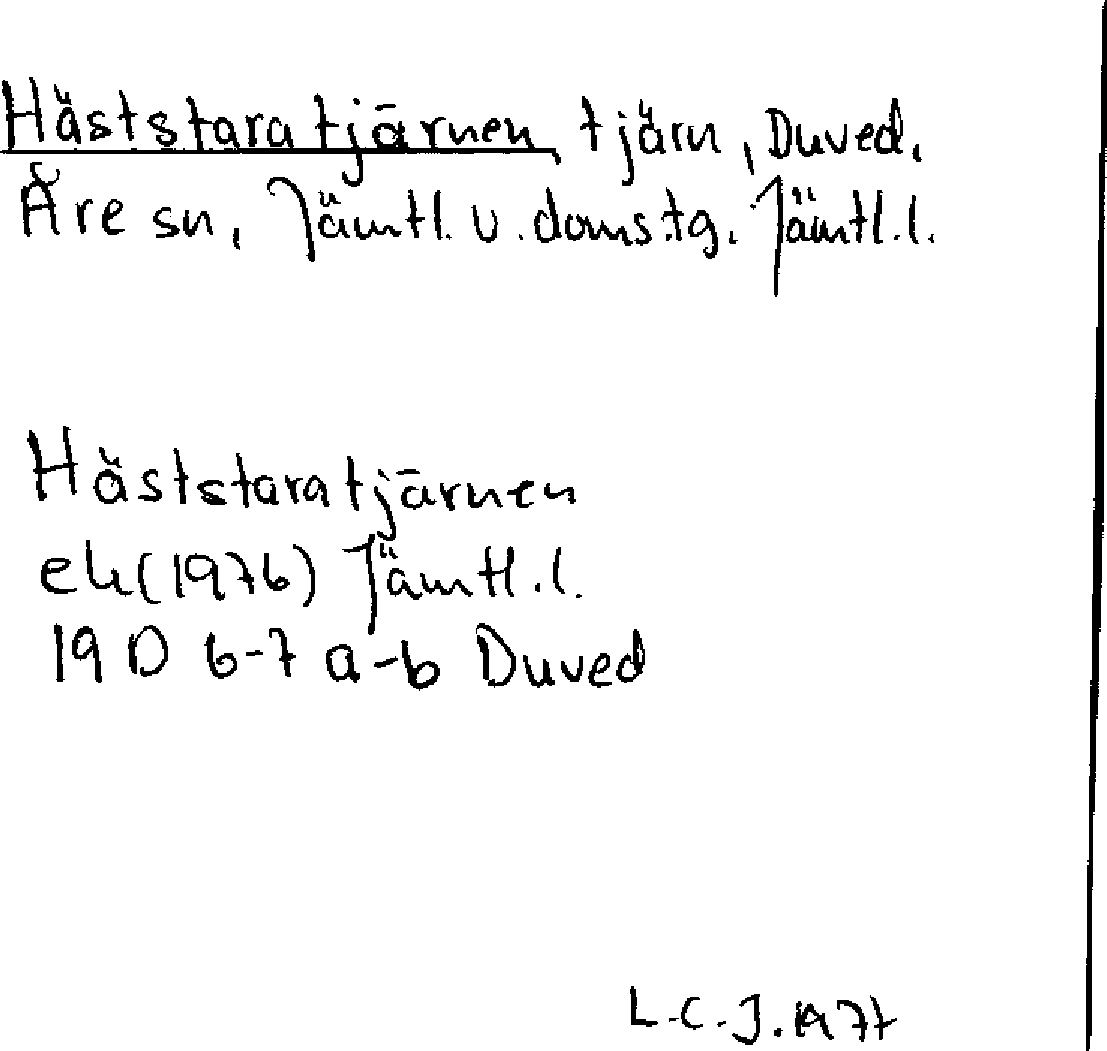 Häststaratjärnen, tjärn, Duved,
Åre sn, Jämtl. v. doms.tg. Jämtl.l.
Häststaratjärnen
ek(1976) Jämtl.l.
19D 6-7 a-b Duved
L.C.J. 1977